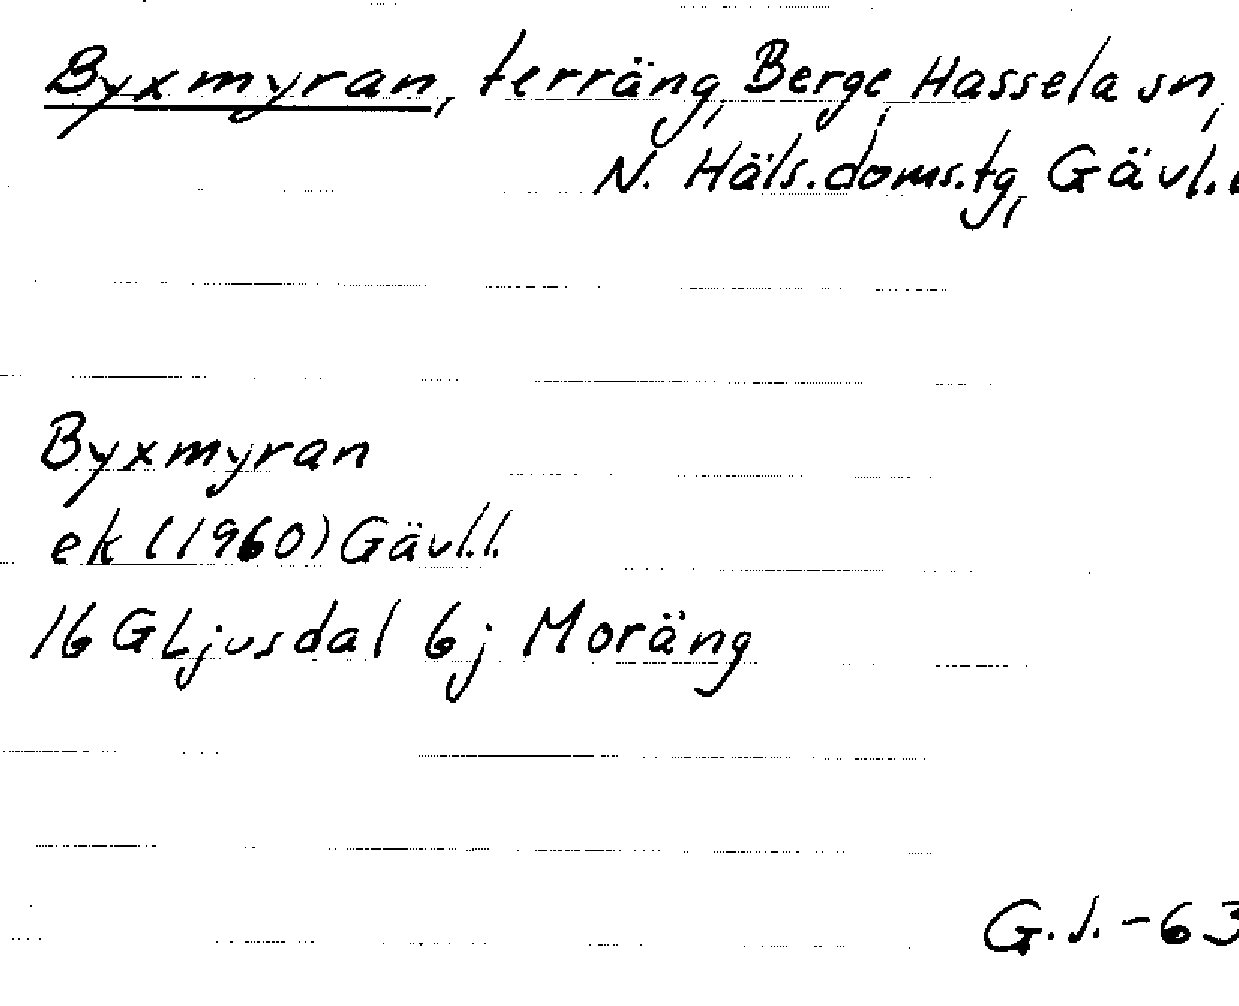 Byxmyran, terräng, Berge, Hassela sn,
N. Häls.doms.tg, Gävl.l
Byxmyran
ek (1960) Gävl.l.
16 G Ljusdal 6 j Moräng
G.J.-63